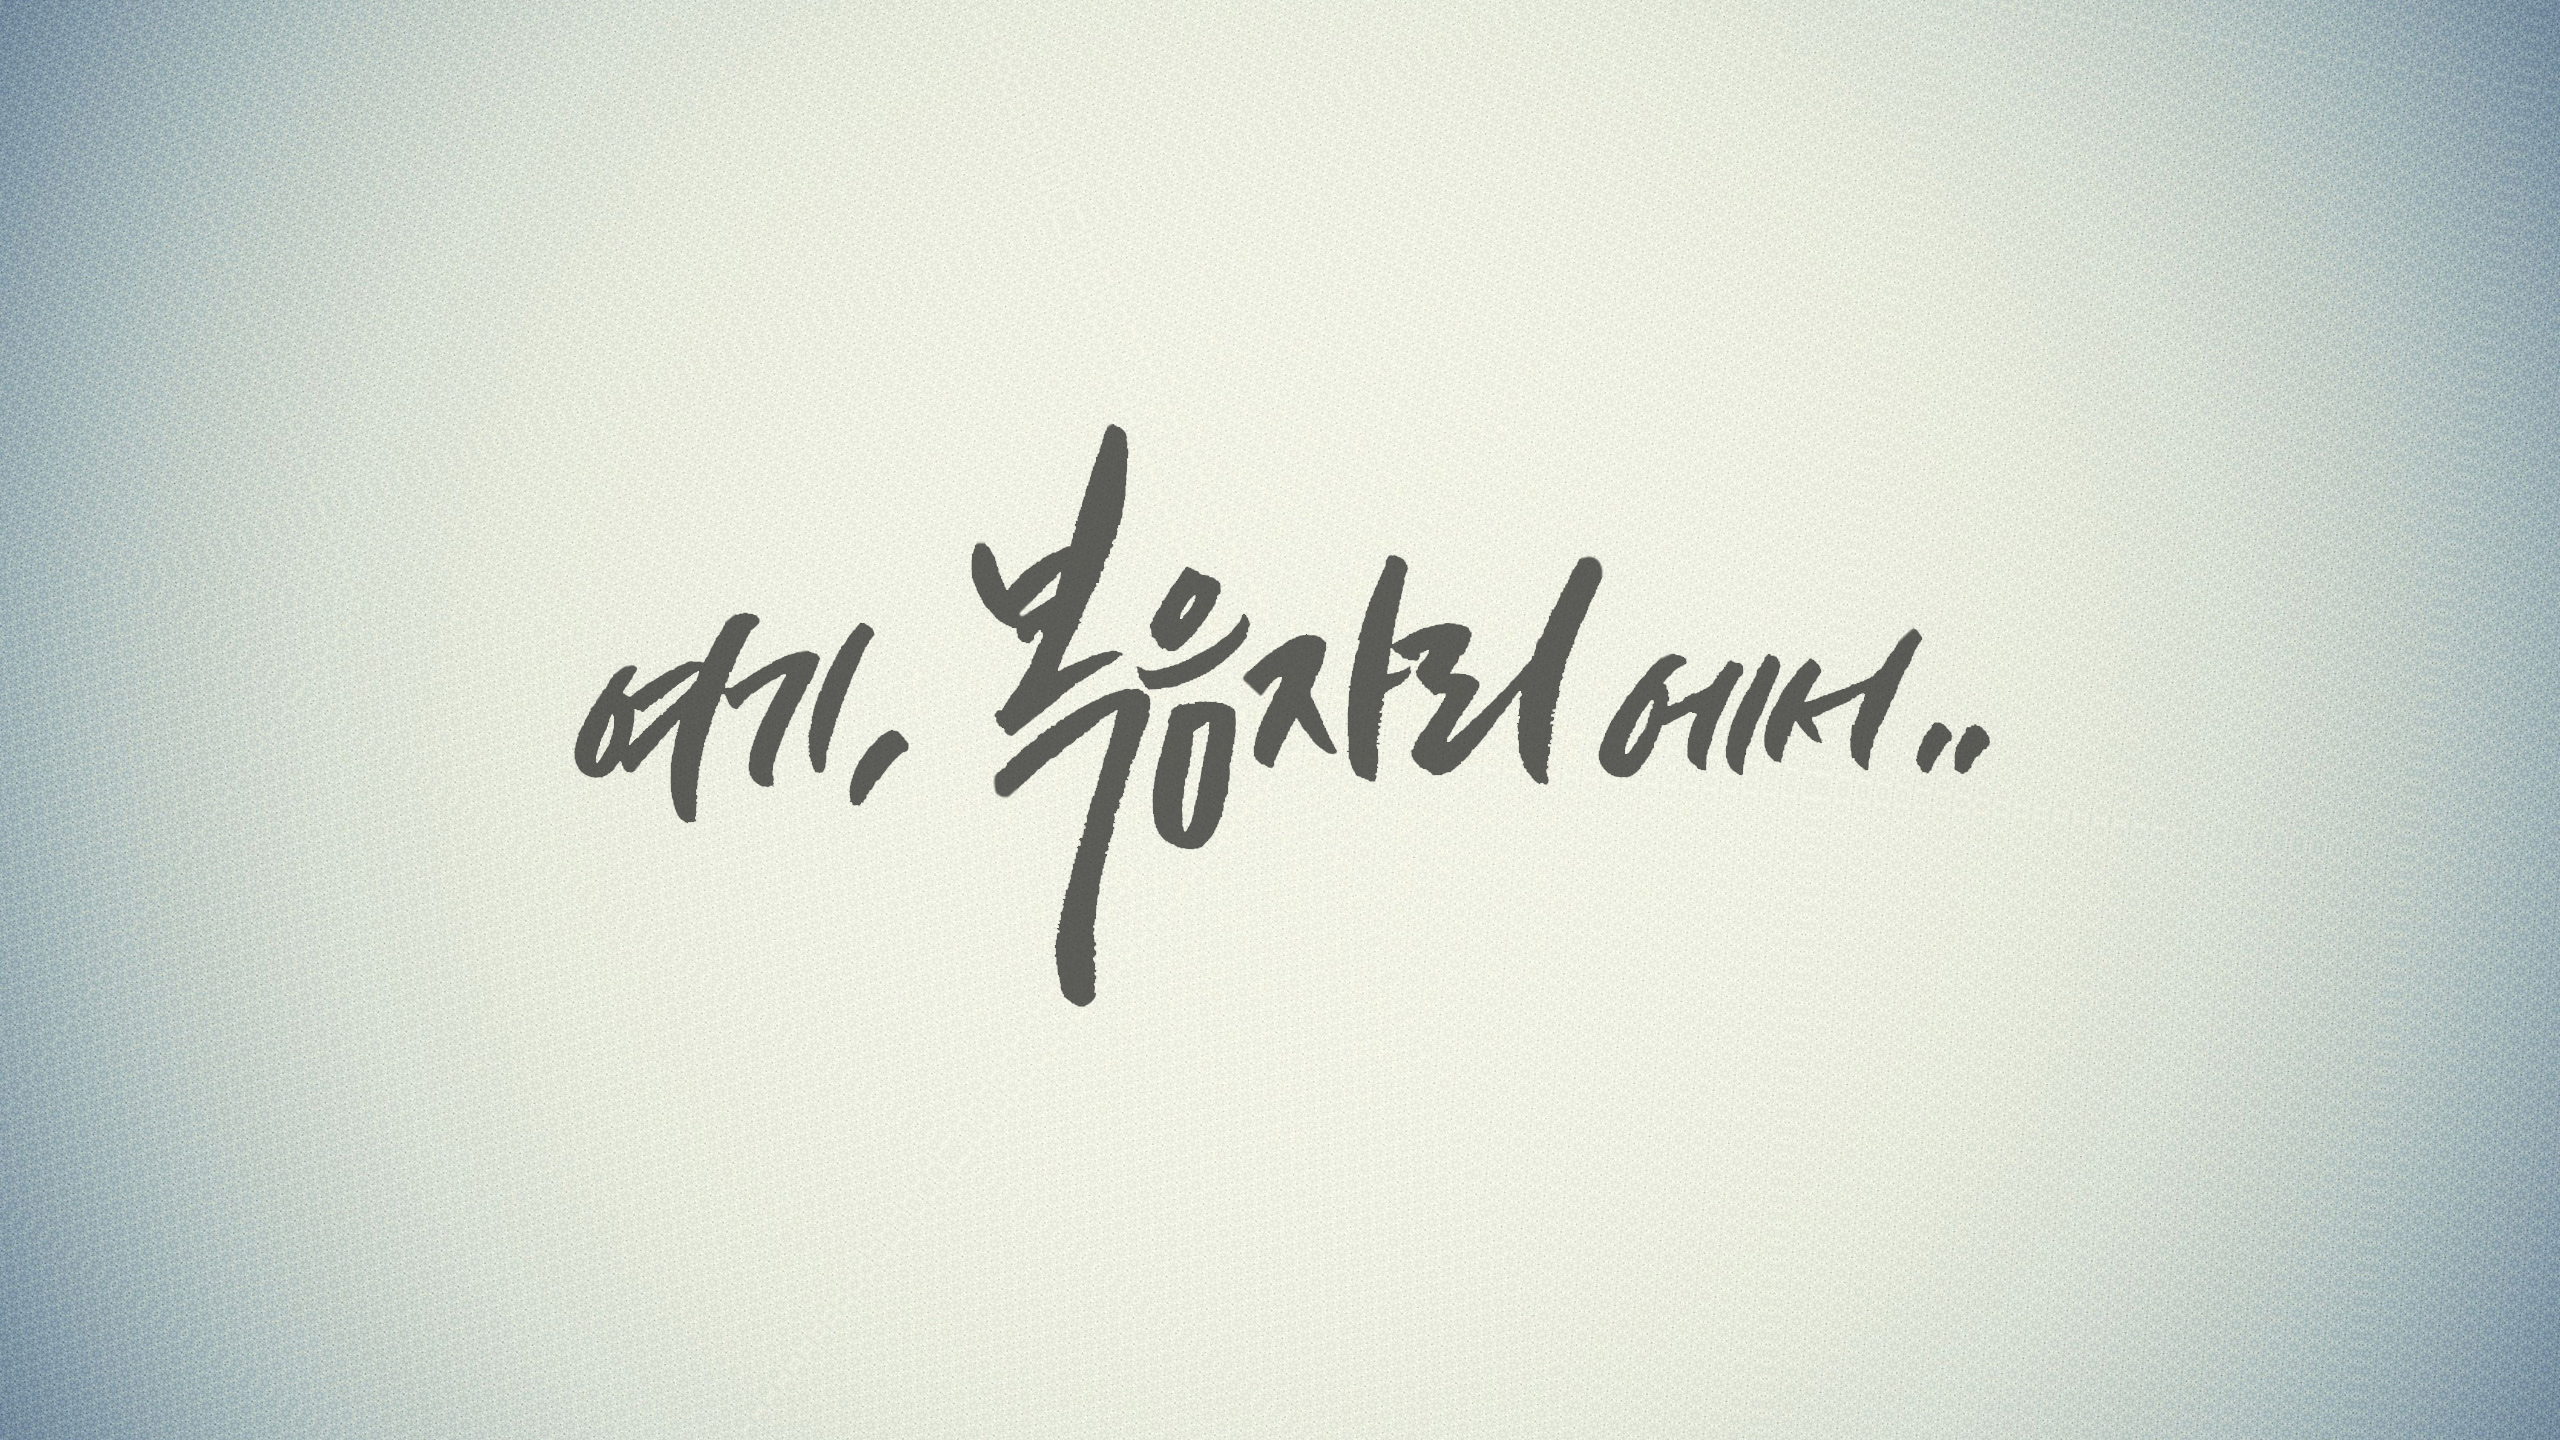 여기, 복음자리에서..